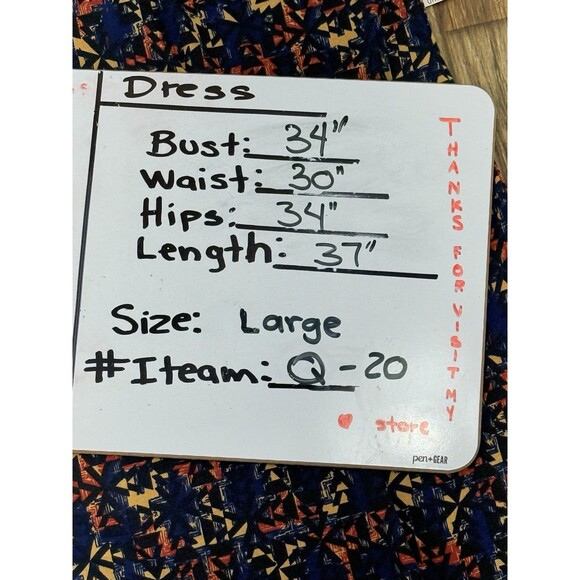 Dress
Bust: 34"
Waist: 30"
Hips: 34"
Length: 37"
Size: Large
#Iteam: Q-20
THANKS FOR VISIT MY
♥ store
pen+GEAR